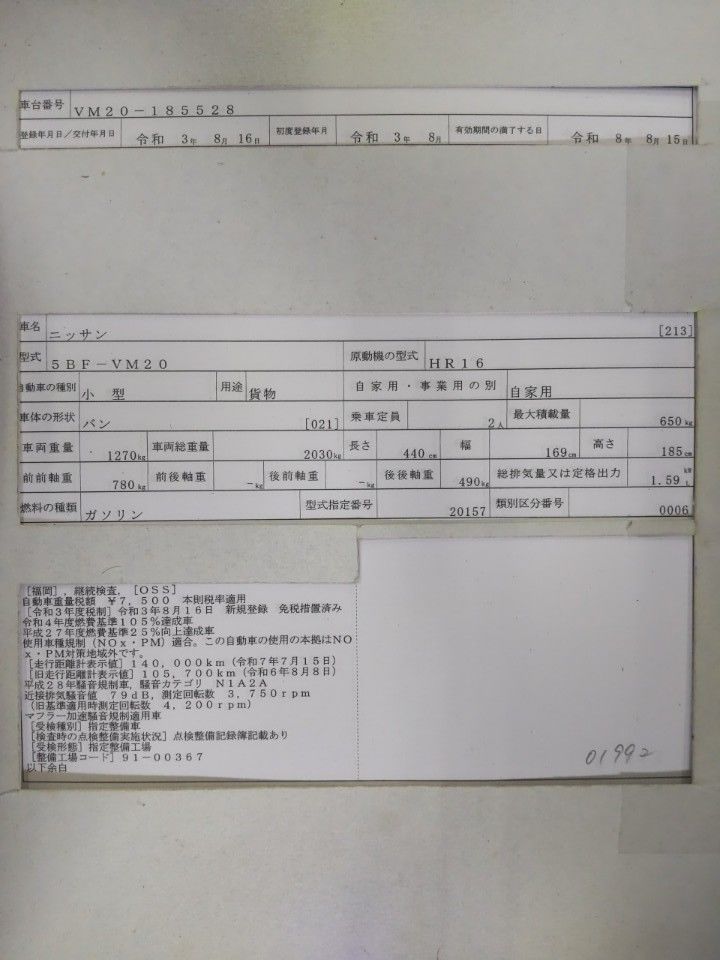 車台番号 VM20-185528
登録年月日/交付年月日 令和 3年 8月 16日 初度登録年月 令和 3年 8月 有効期間の満了する日 令和 8年 8月 15日
車名 ニッサン [213]
型式 5BF-VM20 原動機の型式 HR16
自動車の種別 小 型 用途 貨物 自家用・事業用の別 自家用
車体の形状 バン [021] 乗車定員 2人 最大積載量 650kg
車両重量 1270kg 車両総重量 2030kg 長さ 440cm 幅 169cm 高さ 185cm
前前軸重 780kg 前後軸重 -kg 後前軸重 -kg 後後軸重 490kg 総排気量又は定格出力 1.59 kW L
燃料の種類 ガソリン 型式指定番号 20157 類別区分番号 0006
[福岡],継続検査,[OSS]
自動車重量税額 ¥7,500 本則税率適用
[令和3年度税制]令和3年8月16日 新規登録 免税措置済み
令和4年度燃費基準105%達成車
平成27年度燃費基準25%向上達成車
使用車種規制(NOx・PM)適合。この自動車の使用の本拠はNO
x・PM対策地域外です。
[走行距離計表示値]140,000km(令和7年7月15日)
[旧走行距離計表示値]105,700km(令和6年8月8日)
平成28年騒音規制車,騒音カテゴリ N1A2A
近接排気騒音値 79dB,測定回転数 3,750rpm
(旧基準適用時測定回転数 4,200rpm)
マフラー加速騒音規制適用車
[受検種別]指定整備車
[検査時の点検整備実施状況]点検整備記録簿記載あり
[受検形態]指定整備工場
[整備工場コード]91-00367
以下余白
01992